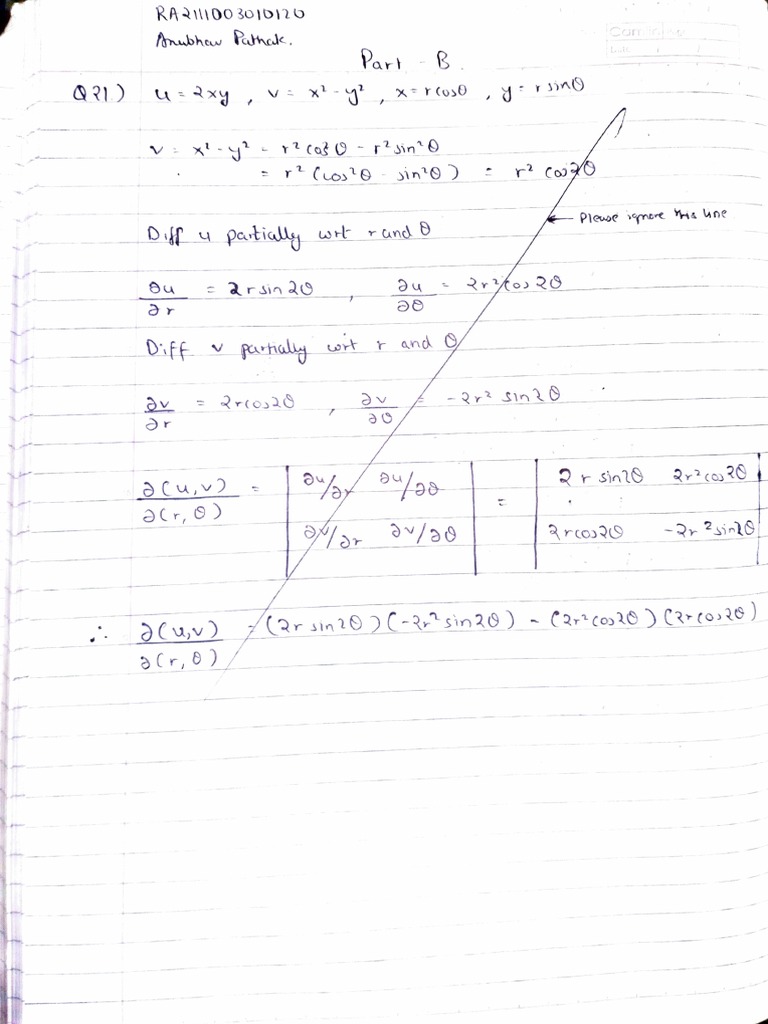 RA2111003010120
Anubhav Pathak.
Part - B.
Q21) u = 2xy , v = x² - y² , x = r cosθ , y = r sinθ
v = x² - y² = r² cos²θ - r² sin²θ
= r² (cos²θ - sin²θ) = r² cos2θ
← Please ignore this line
Diff u partially wrt r and θ
∂u/∂r = 2r sin2θ , ∂u/∂θ = 2r² cos2θ
Diff v partially wrt r and θ
∂v/∂r = 2r cos2θ , ∂v/∂θ = -2r² sin2θ
∂(u,v)/∂(r,θ) = | ∂u/∂r ∂u/∂θ | = | 2r sin2θ 2r² cos2θ |
| ∂v/∂r ∂v/∂θ | | 2r cos2θ -2r² sin2θ |
∴ ∂(u,v)/∂(r,θ) = (2r sin2θ)(-2r² sin2θ) - (2r² cos2θ)(2r cos2θ)